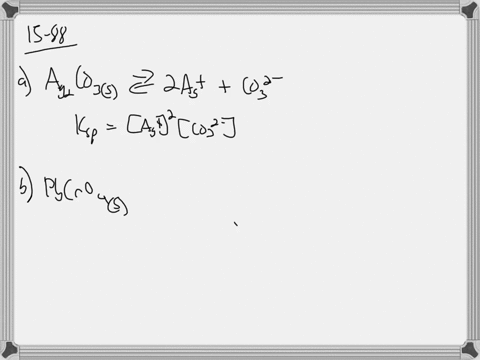 15-88
a) Ag₂CO₃(s) ⇌ 2Ag⁺ + CO₃²⁻
Ksp = [Ag⁺]²[CO₃²⁻]
b) PbCrO₄(s)